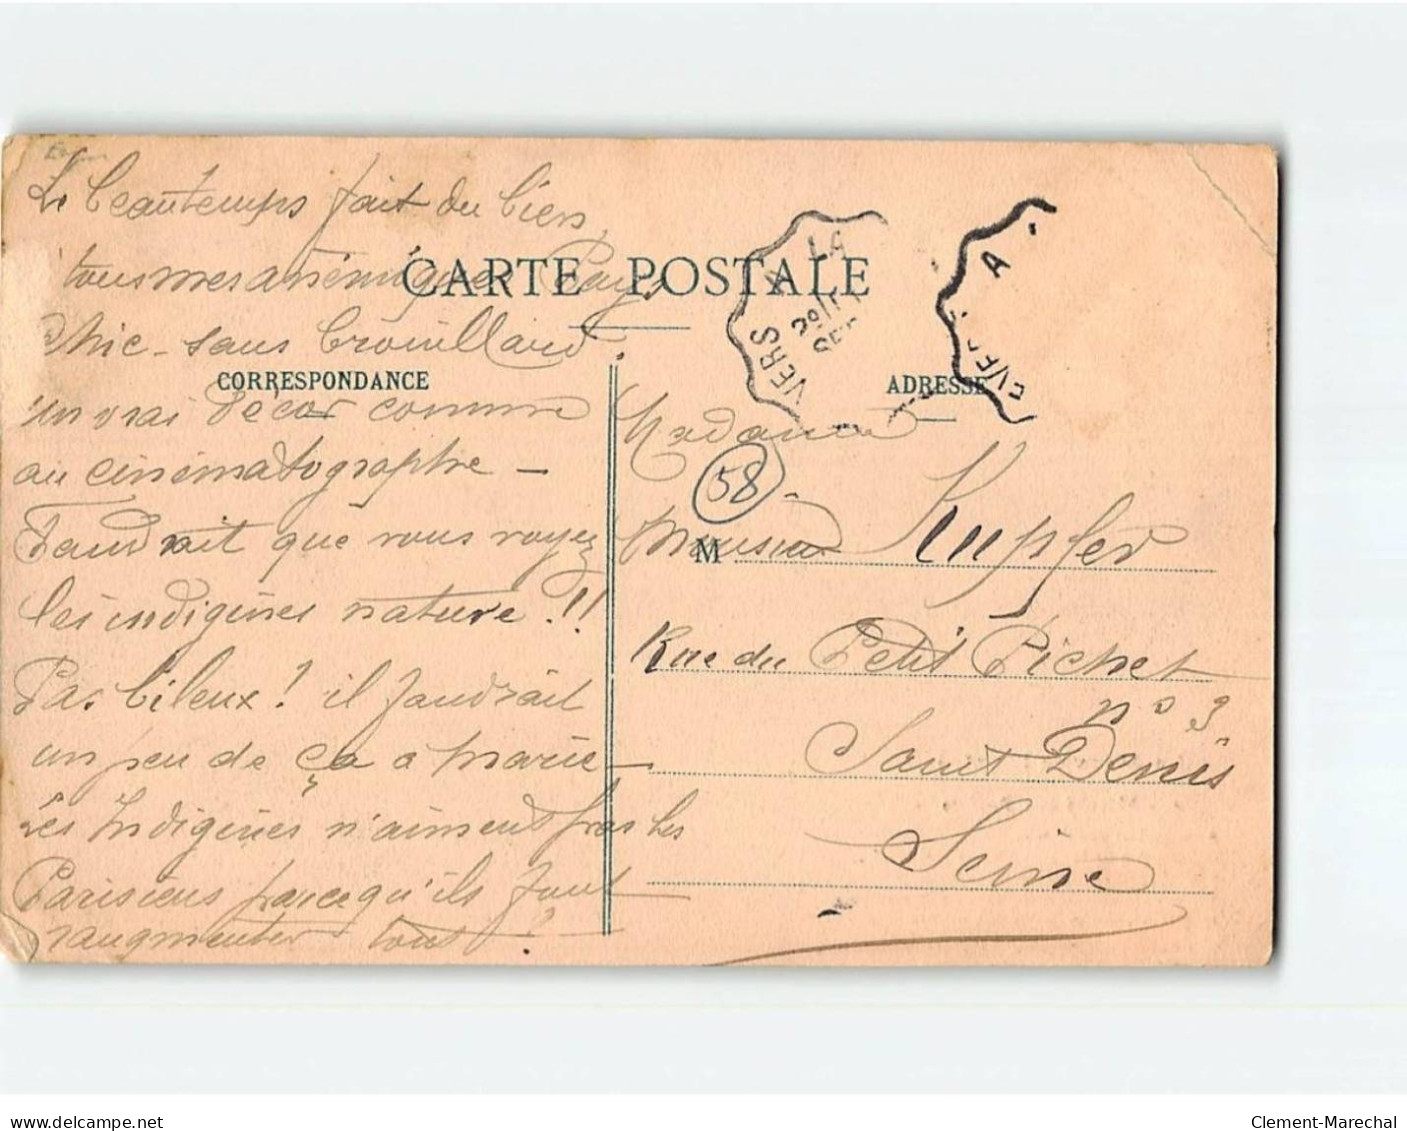 Le beau temps fait du bien,
tous mes anémiques Pays
CARTE POSTALE
chic - sans brouillard
CORRESPONDANCE
un vrai décor comme
au cinématographe -
Faudrait que vous voyez
les indigènes nature !!
Pas bileux ! il faudrait
un peu de ça à Marie -
Les Indigènes n'aiment pas les
Parisiens parcequ'ils font
augmenter tout !
VERS A LA
29
A
ADRESSE
Madame
58
Monsieur M Kupfer
Rue du Petit Pichet
n° 3
Saint Denis
Seine
Clement-Marechal